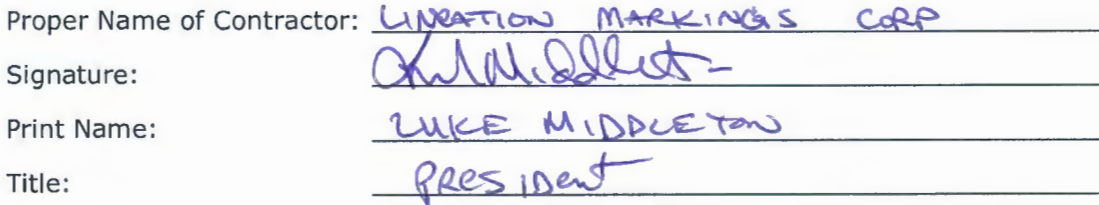 Proper Name of Contractor: LINEATION MARKINGS CORP
Signature: Middleton
Print Name: LUKE MIDDLETON
Title: PRESIDENT